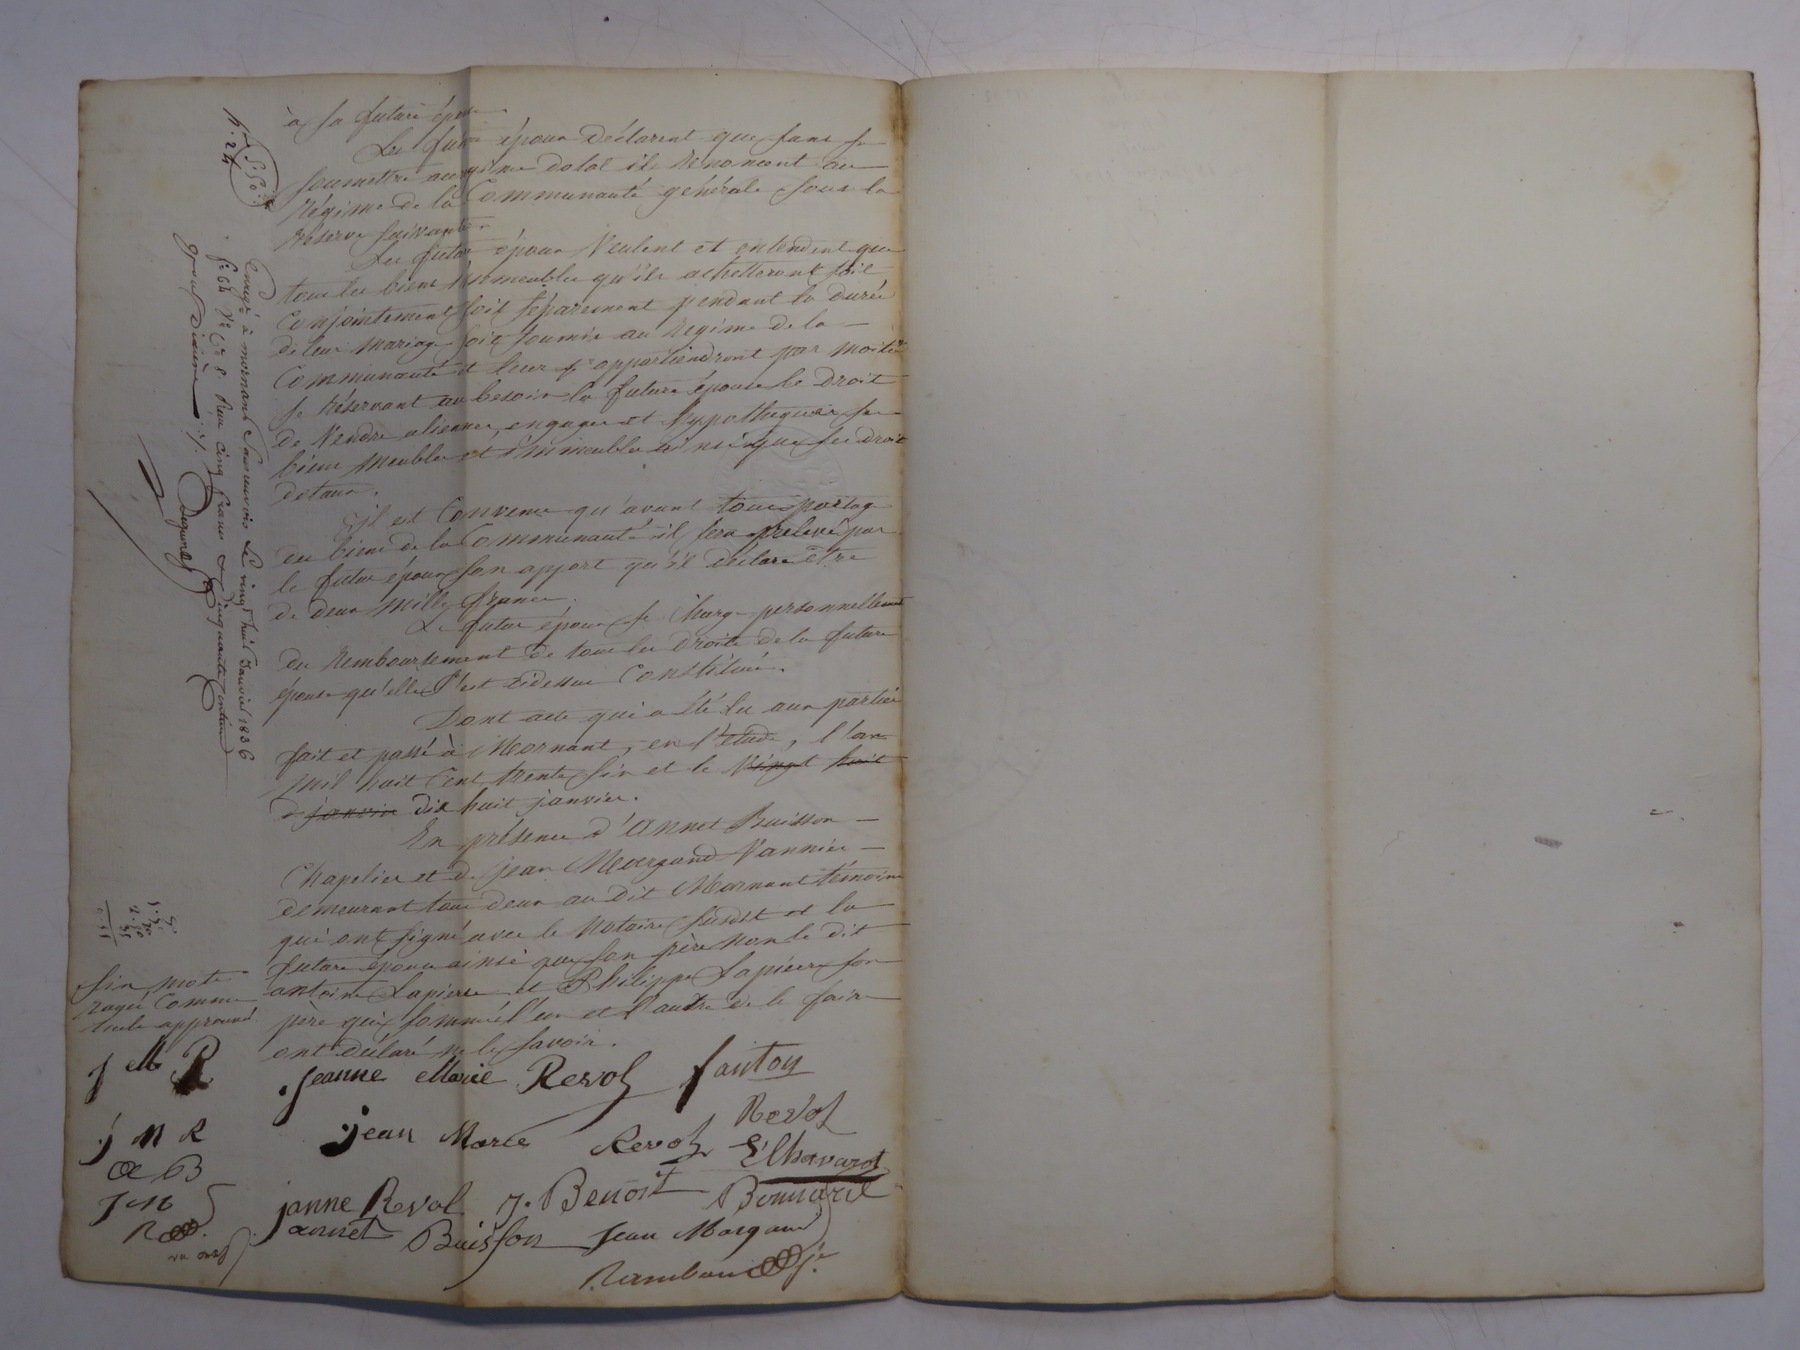 à sa future épouse
Les futurs époux déclarent que sans se
soumettre au régime dotal ils renoncent au
régime de la Communauté générale sous la
réserve suivante.
Les futurs époux Veulent et entendent que
tous les biens immeubles qu'ils achetteront soit
Conjointement soit séparément pendant la durée
de leur mariage soit soumis au Régime de la
Communauté et leur appartiendront par moitié
se réservant au besoin la future épouse le droit
de Vendre aliener, engager et hypothequer ses
biens meubles et immeubles ainsi que ses droits
dotaux.
Il est Convenu qu'avant tous partag
des biens de la Communauté il sera prélevé par
le futur époux son apport qu'il déclare être
de deux mille francs.
Le futur époux se charge personnellement
du Remboursement de tous les droits de la future
épouse qu'elle s'est cidessus Constitués.
Dont acte qui a été lu aux parties
fait et passé à Mornant, en l'étude, l'an
mil huit Cent trente six et le Vingt huit
janvier dix huit janvier.
En présence d'Annet Buisson
Chapelier et de jean Margand Vannier
demeurant tous deux au dit Mornant témoins
qui ont signé avec le Notaire susdit et la
future épouse ainsi que son père non le dit
antoine Lapierre et Philippe Lapierre son
père qui sommés l'un et l'autre de le faire
ont déclaré ne le savoir.
Jeanne Marie Revol fanton
jean Marie Revol Revol
Chavarot
janne Reval J. Benoit Bonnard
annet Buisson Jean Margand
Rambaud
Six mots
rayés Comme
nuls approuvés
J M R
j M R
a B
J M
R
Enregé à mornant Le vingt huit Janvier 1836
f° 64 V° C 8. Reçu cinq francs & cinquante centimes
pour dixième
5.50